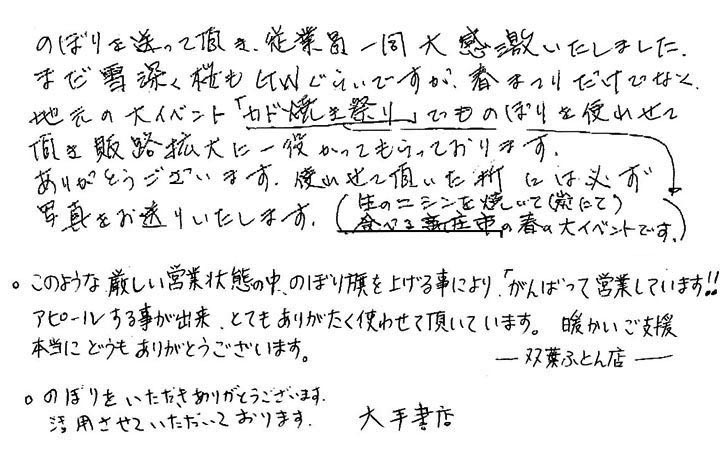 のぼりを送って頂き、従業員一同大感激いたしました。
まだ雪深く桜もGWぐらいですが、春まつりだけでなく、
地元の大イベント「カド焼き祭り」でものぼりを使わせて
頂き販路拡大に一役かってもらっております。
ありがとうございます。使わせて頂いた折には必ず
写真をお送りいたします。
(生のニシンを焼いて(炭にて)
食べる新庄市の春の大イベントです。)
。このような厳しい営業状態の中、のぼり旗を上げる事により、「がんばって営業しています!!
アピールする事が出来、とてもありがたく使わせて頂いています。暖かいご支援
本当にどうもありがとうございます。
―双葉ふとん店―
。のぼりをいただきありがとうございます。
活用させていただいております。 大手書店